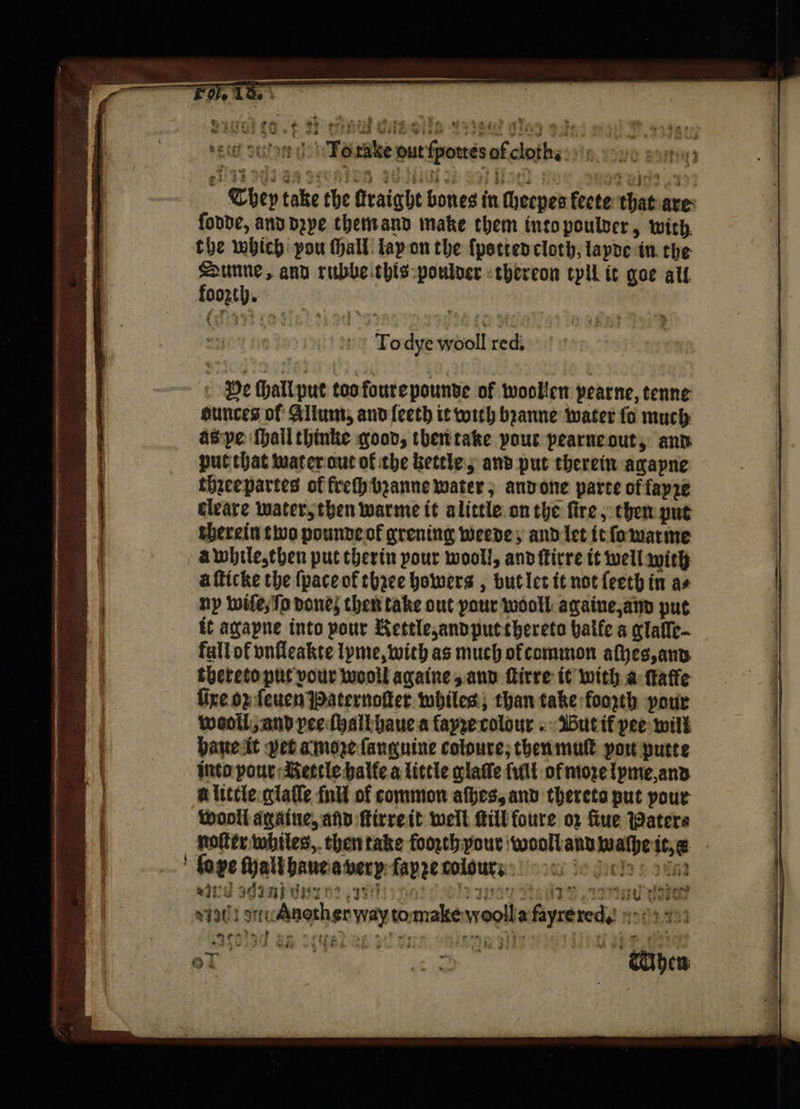 Fol. 18.
To take out spottes of cloth.
They take the straight bones in sheepes feete that are
sodde, and drye them and make them into poulder, with
the which you shall lay on the spotted cloth, layde in the
Sunne, and rubbe this poulder thereon tyll it goe all
foorth.
To dye wooll red.
Ye shall put too foure pounde of woollen yearne, tenne
ounces of Allum, and seeth it with branne water so much
as ye shall thinke good, then take your yearne out, and
put that water out of the kettle, and put therein agayne
three partes of fresh branne water, and one parte of fayre
cleare water, then warme it a little on the fire, then put
therein two pounde of grening weede, and let it so warme
a while, then put therin your wooll, and stirre it well with
a sticke the space of three howers, but let it not seeth in a-
ny wise, so done, then take out your wooll againe, and put
it agayne into your Kettle, and put thereto halfe a glasse-
full of vnsleakte lyme, with as much of common ashes, and
thereto put your wooll againe, and stirre it with a staffe
sixe or seuen Paternoster whiles, than take foorth your
wooll, and yee shall haue a fayre colour. But if yee will
haue it yet a more sanguine coloure, then must you putte
into your Kettle halfe a little glasse full of more lyme, and
a little glasse full of common ashes, and thereto put your
wooll againe, and stirre it well still foure or fiue Paters
noster whiles, then take foorth your wooll and washe it, &
so ye shall haue a very fayre colour.
Another way to make wooll a fayre red.
When